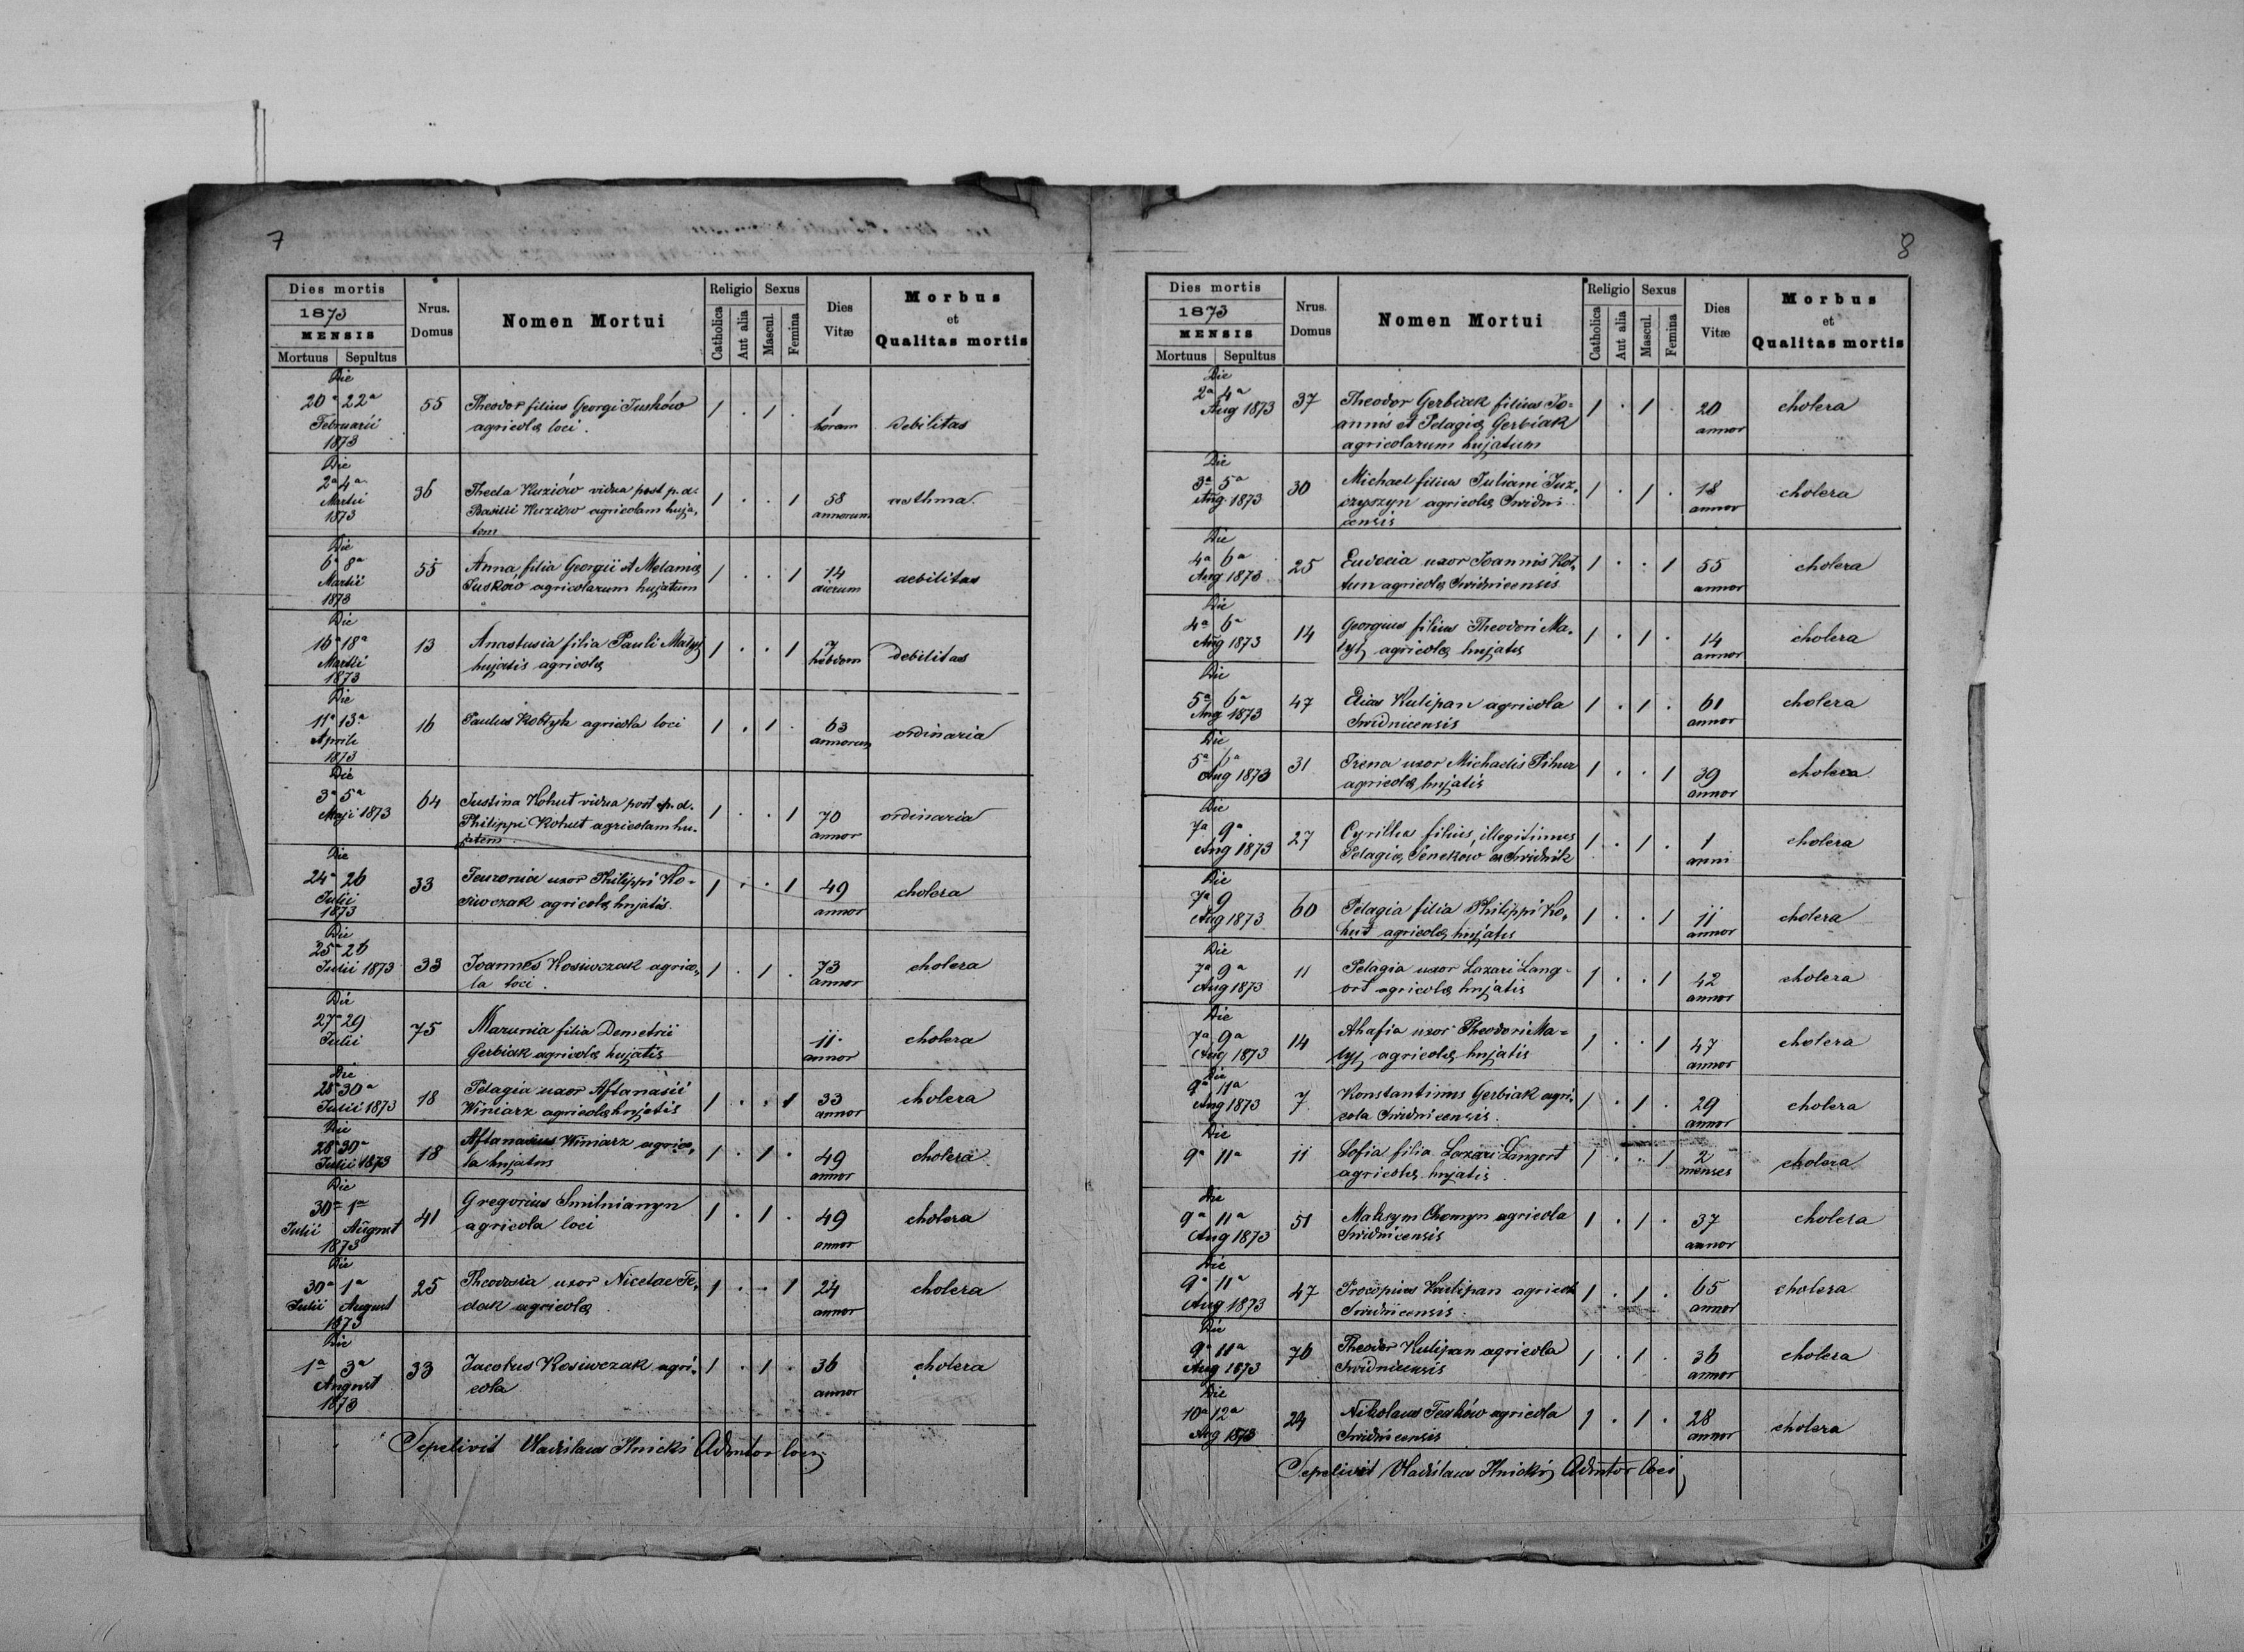 7
Dies mortis
1873
MENSIS
Mortuus Sepultus
Nrus. Domus
Nomen Mortui
Religio
Catholica
Aut alia
Sexus
Mascul.
Femina
Dies Vitæ
Morbus et Qualitas mortis
Die
20a 22a
Februarii
1873
55
Theodor filius Georgi Juskow
agricolæ loci.
1 . 1 .
1
horam
debilitas
Die
2a 4a
Martii
1873
36
Thecla Kuziów vidua post p.d.
Basilii Kuziów agricolam huja,
tem
1 . . 1
58
annorum
asthma
Die
6a 8a
Martii
1873
55
Anna filia Georgii et Melaniæ
Juskow agricolarum hujatum
1 . . 1
14
dierum
debilitas
Die
16a 18a
Martii
1873
13
Anastasia filia Pauli
hujatis agricolæ
1 . . 1
7
hebdom
debilitas
Die
11a 13a
Aprili
1873
16
Paulus agricola loci
1 . 1 .
63
annorum
ordinaria
Die
3a 5a
Maji 1873
64
Justina Kohut vidua post p.d.
Philippi Kohut agricolam hu-
jatem
1 . . 1
70
annor
ordinaria
Die
24a 26
Julii
1873
33
uxor Philippi Ko-
siwczak agricolæ hujatis.
1 . . 1
49
annor
cholera
Die
25a 26
Julii 1873
33
Joannes Kosiwczak agrico,
la loci.
1 . 1 .
73
annor
cholera
Die
27a 29
Julii
75
Marunia filia Demetrii
Gerbiak agricolæ hujatis
11
annor
cholera
Die
28a 30a
Julii 1873
18
Pelagia uxor Aftanasii
Winiarz agricolæ hujatis
1 . . 1
33
annor
cholera
Die
28a 30a
Julii 1873
18
Aftanasius Winiarz agrico,
la hujatus
1 . 1 .
49
annor
cholera
Die
30a 1a
Julii August
1873
41
Gregorius Smilnianyn
agricola loci
1 . 1 .
49
annor
cholera
Die
30a 1a
Julii August
1873
25
Theodosia uxor Nicolae Fe,
dak agricolæ
1 . . 1
24
annor
cholera
Die
1a 3a
August
1873
33
Jacobus Kosiwczak agri,
cola
1 . 1 .
36
annor
cholera
Sepelivit Vladislaus Ilnicki Admtor loci
8
Dies mortis
1873
MENSIS
Mortuus Sepultus
Nrus. Domus
Nomen Mortui
Religio
Catholica
Aut alia
Sexus
Mascul.
Femina
Dies Vitæ
Morbus et Qualitas mortis
Die
2a 4a
Aug 1873
37
Theodor Gerbiak filius Jo=
annis et Pelagiæ Gerbiak
agricolarum hujatum
1 . 1 .
20
annor
cholera
Die
3a 5a
Aug 1873
30
Michael filius Juliani
agricolæ Swidni
censis
1 . 1 .
18
annor
cholera
Die
4a 6a
Aug 1873
25
Eudocia uxor Joannis Koł,
tun agricolæ Swidnicensis
1 . . 1
55
annor
cholera
Die
4a 6a
Aug 1873
14
Georgius filius Theodori
agricolæ hujatis
1 . 1 .
14
annor
cholera
Die
5a 6a
Aug 1873
47
Elias Kulipan agricola
Swidnicensis
1 . 1 .
61
annor
cholera
Die
5a 6a
Aug 1873
31
Irena uxor Michaelis Pihur
agricolæ hujatis
1 . . 1
39
annor
cholera
Die
7a 9a
Aug 1873
27
Cyrillus filius illegitimus
Pelagiæ Senekow ex Swidnik
1 . 1 .
1
anni
cholera
Die
7a 9
Aug 1873
60
Pelagia filia Philippi Ko,
hut agricolæ hujatis
1 . . 1
11
annor
cholera
Die
7a 9a
Aug 1873
11
Pelagia uxor Lazari Lang-
ort agricolæ hujatis
1 . . 1
42
annor
cholera
Die
7a 9a
Aug 1873
14
Ahafia uxor Theodori
agricolæ hujatis
1 . . 1
47
annor
cholera
Die
9a 11a
Aug 1873
7
Konstantinus Gerbiak agri,
cola Swidnicensis.
1 . 1 .
29
annor
cholera
Die
9a 11a
11
Sofia filia Lazari Langort
agricolæ hujatis
1 . . 1
2
menses
cholera
Die
9a 11a
Aug 1873
51
Maksym Chomyn agricola
Swidnicensis
1 . 1 .
37
annor
cholera
Die
9a 11a
Aug 1873
47
Procopius Kulipan agricola
Swidnicensis.
1 . 1 .
65
annor
cholera
Die
9a 11a
Aug 1873
76
Theodor Kulipan agricola
Swidnicensis
1 . 1 .
36
annor
cholera
Die
10a 12a
Aug 1873
24
Nikolaus agricola
Swidnicensis
1 . 1 .
28
annor
cholera
Sepelivit Vladislaus Ilnicki Admtor loci